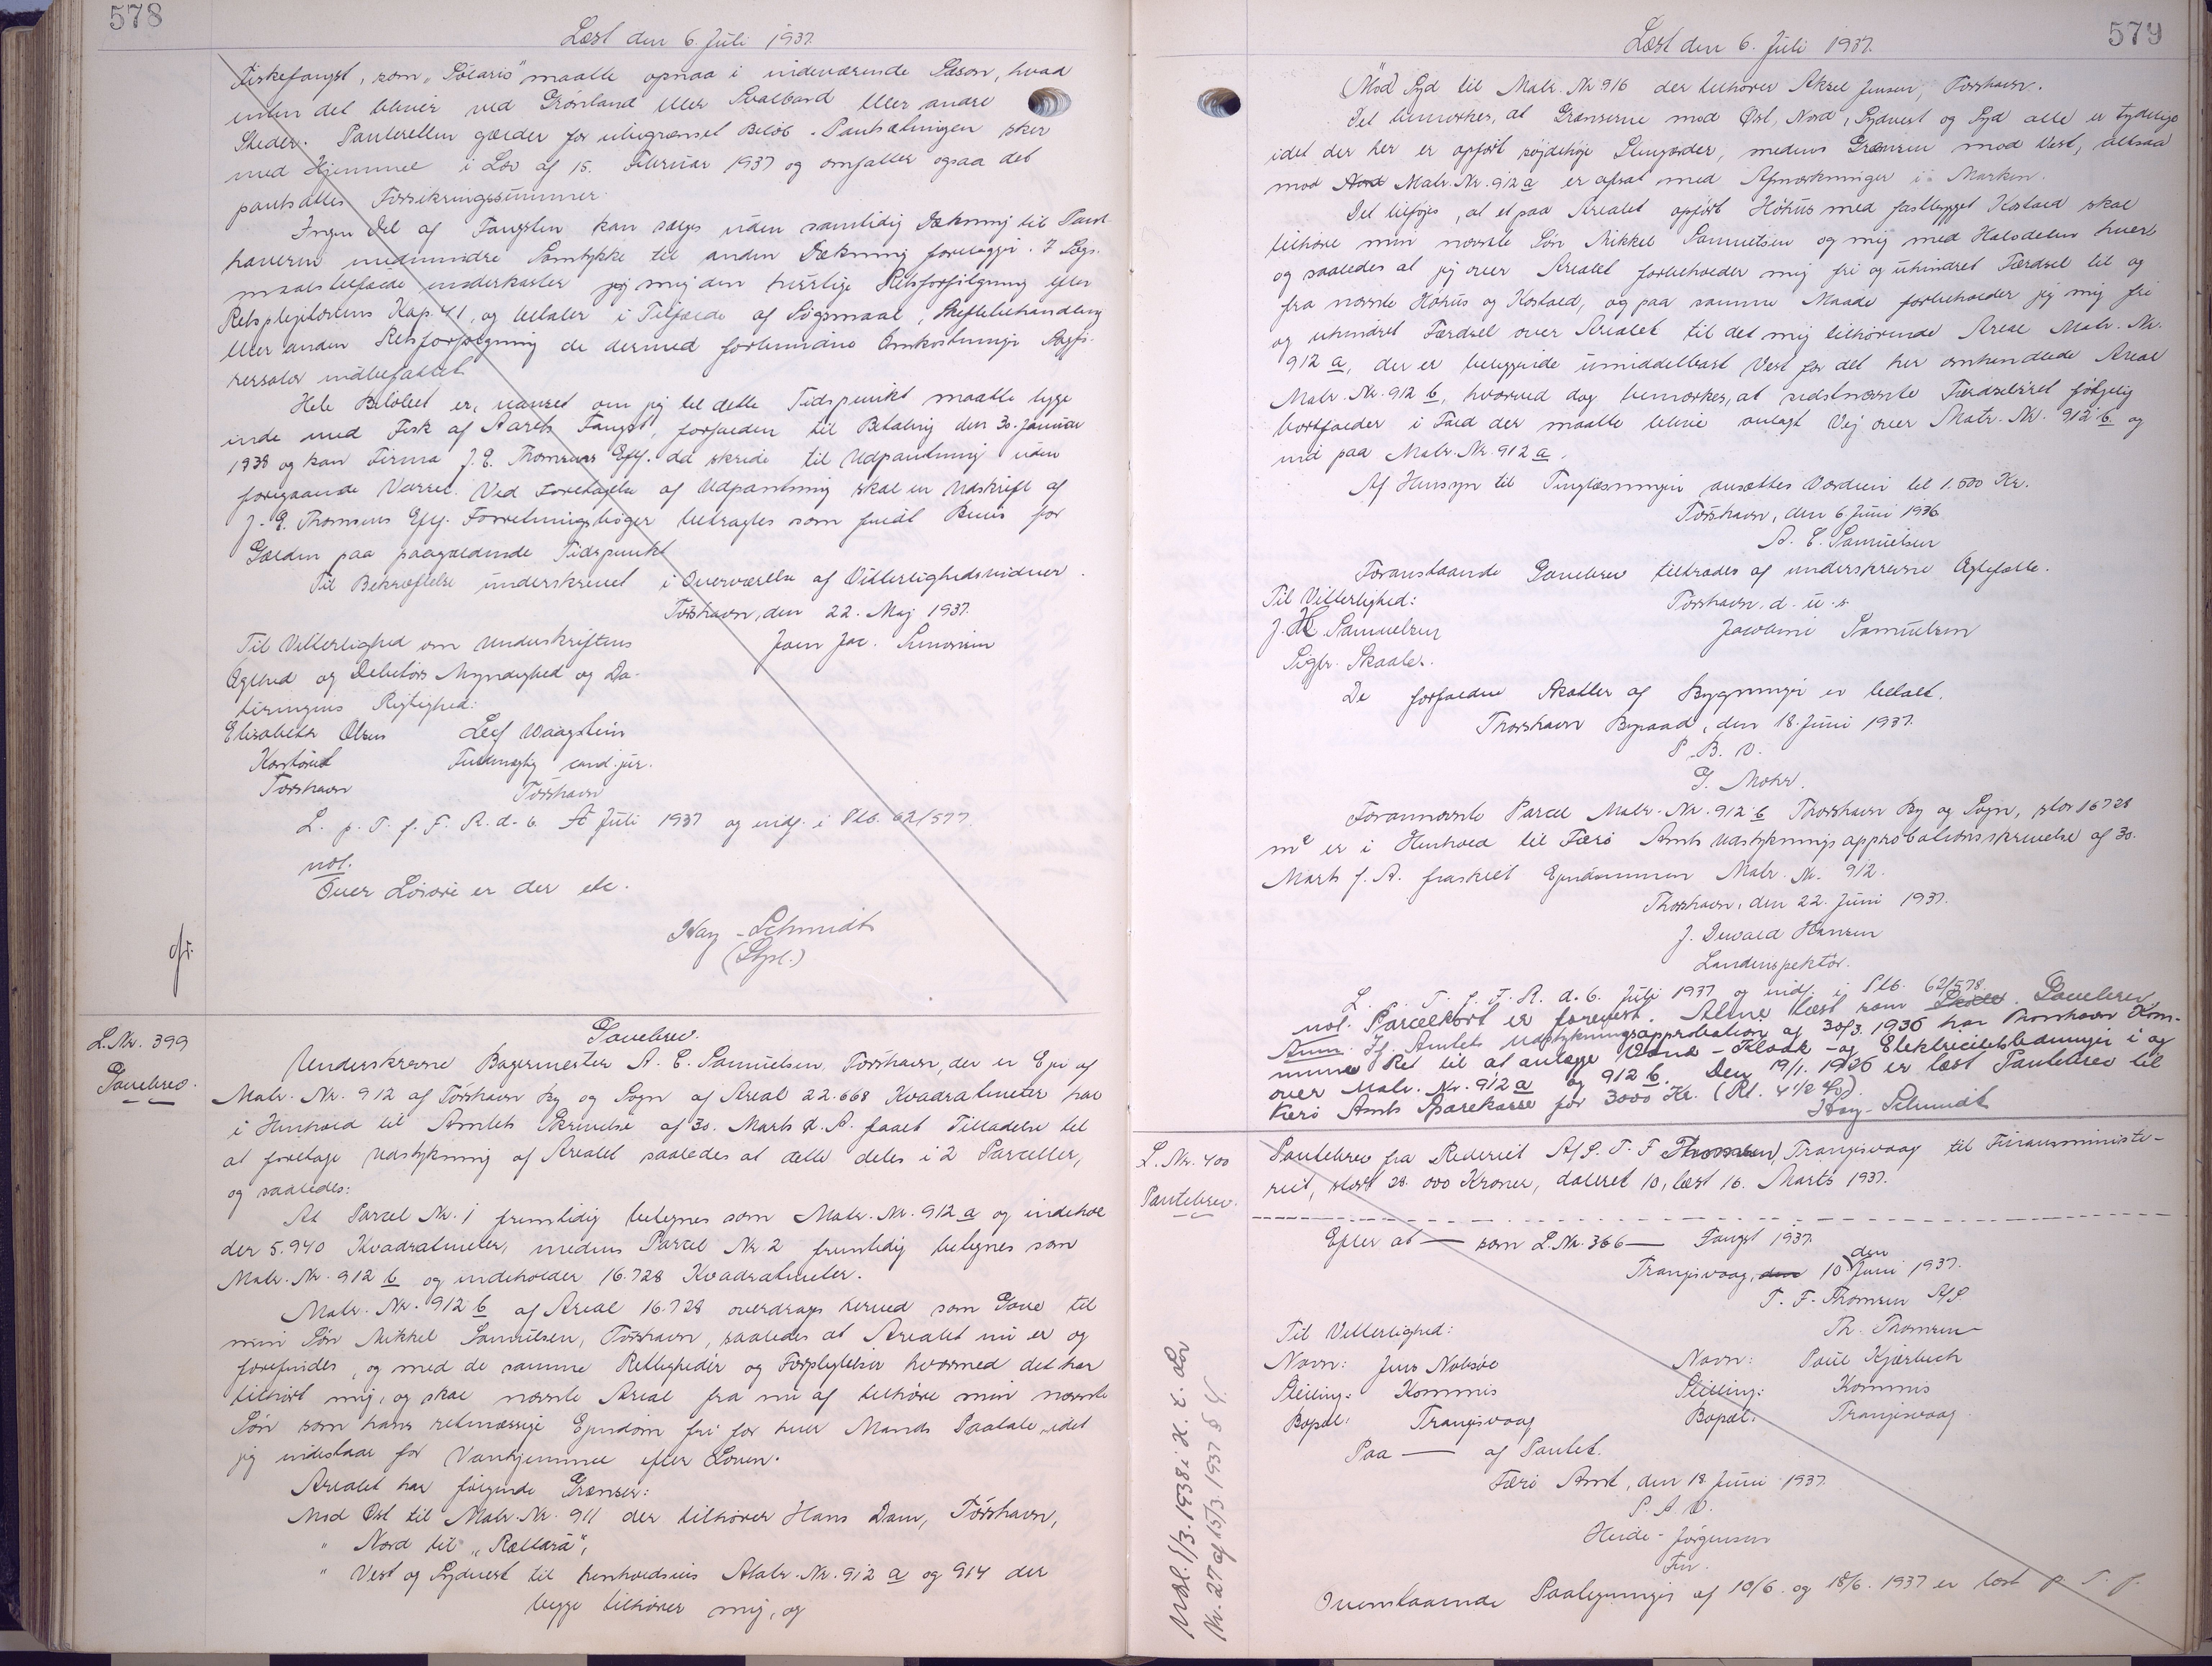 578
Læst den 6. Juli 1937.
Fiskefangst, som "Solaris" maatte opnaa i indeværende Sæson, hvad
enten det bliver ved Grønland eller Svalbard eller andre
Steder. Panteretten gælder for ubegrænset Beløb. Pantsætningen sker
med Hjemmel i Lov af 15. Februar 1937 og omfatter ogsaa det
pantsattes Forsikringssummer.
Ingen Del af Fangsten kan sælges uden samtidig Dækning til Pant-
haveren medmindre Samtykke til anden Dækning foreligger. I Søgs-
maalstilfælde underkaster jeg mig den hurtige Retsforfølgning efter
Retsplejelovens Kap. 41, og betaler i Tilfælde af Søgsmaal, Skiftebehandling
eller anden Retsforfølgning de dermed forbundne Omkostninger Sagfø-
rersalær indbefattet.
Hele Beløbet er, uanset om jeg til dette Tidspunkt maatte ligge
inde med Fisk af Aarets Fangst, forfalden til Betaling den 30. Januar
1938 og kan Firma J. E. Thomsens Eftf. da skride til Udpantning uden
foregaaende Varsel. Ved Foretagelse af Udpantning skal en Udskrift af
J. E. Thomsens Eftf. Forretningsbøger betragtes som fuldt Bevis for
Gælden paa paagældende Tidspunkt.
Til Bekræftelse underskrevet i Overværelse af Vitterlighedsvidner.
Tórshavn, den 22. Maj 1937.
Til Vitterlighed om Underskriftens Joen Jac. Simonsen
Ægthed og Debitors Myndighed og Da-
teringens Rigtighed:
Elisabeth Olsen Leif Waagstein
Kontorist Fuldmægtig cand. jur.
Tórshavn Tórshavn
L. p. T. f. F. R. d. 6. Juli 1937 og indf. i Ptb. 62/577.
not.
Over Løsøre er der etc.
Hay-Schmidt
(Styl.)
L. Nr. 399
Gavebrev.
Gavebrev.
Underskrevne Bagermester A. C. Samuelsen, Tórshavn, der er Ejer af
Matr. Nr. 912 af Tórshavn By og Sogn af Areal 22.668 Kvadratmeter har
i Henhold til Amtets Skrivelse af 30. Marts d. A. faaet Tilladelse til
at foretage Udstykning af Arealet saaledes at dette deles i 2 Parceller,
og saaledes:
At Parcel Nr. 1 fremtidig betegnes som Matr. Nr. 912 a og indehol-
der 5.940 Kvadratmeter, medens Parcel Nr. 2 fremtidig betegnes som
Matr. Nr. 912 b og indeholder 16.728 Kvadratmeter.
Matr. Nr. 912 b af Areal 16.728 overdrages herved som Gave til
min Søn Mikkel Samuelsen, Tórshavn, saaledes at Arealet nu er og
forefindes, og med de samme Rettigheder og Forpligtelser hvormed det har
tilhørt mig, og skal nævnte Areal fra nu af tilhøre min nævnte
Søn som hans retmæssige Ejendom fri for hver Mands Paatale, idet
jeg indestaar for Vanhjemmel efter Loven.
Arealet har følgende Grænser:
Mod Øst til Matr. Nr. 911 der tilhører Hans Dam, Tórshavn,
" Nord til "Rættará",
" Vest og Sydvest til henholdsvis Matr. Nr. 912 a og 914 der
begge tilhører mig, og
579
Læst den 6. Juli 1937.
(Mod) Syd til Matr. Nr. 916 der tilhører Aksel Jensen, Tórshavn.
Det bemærkes, at Grænserne mod Øst, Nord, Sydvest og Syd alle er tydelige
idet der her er opført højdehøje Stengærder, medens Grænsen mod Vest, altsaa
mod Matr. Nr. 912 a er afsat med Afmærkninger i Marken.
Det tilføjes, at et paa Arealet opført Høhus med fastbygget Kostald skal
tilhøre min nævnte Søn Mikkel Samuelsen og mig med Halvdelen hver
og saaledes at jeg over Arealet forbeholder mig fri og uhindret Færdsel til og
fra nævnte Høhus og Kostald, og paa samme Maade forbeholder jeg mig fri
og uhindret Færdsel over Arealet til det mig tilhørende Areal Matr. Nr.
912 a, der er beliggende umiddelbart Vest for det her omhandlede Areal
Matr. Nr. 912 b, hvorved dog bemærkes, at sidstnævnte Færdselsret følgelig
bortfalder i Fald der maatte blive anlagt Vej over Matr. Nr. 912 b og
ind paa Matr. Nr. 912 a.
Af Hensyn til Tinglæsningen ansættes Værdien til 1.500 Kr.
Tórshavn, den 6 Juni 1936
A. C. Samuelsen
Foranstaaende Gavebrev tiltrædes af underskrevne Ægtefælle.
Til Vitterlighed: Tórshavn, d. u. s.
J. H. Samuelsen Jacobine Samuelsen
Sigfr. Skaale.
De forfaldne Skatter af Bygninger er betalt.
Thorshavn Byraad, den 18. Juni 1937.
P. B. V.
G. Mohr.
Forannævnte Parcel Matr. Nr. 912 b Thorshavn By og Sogn, stor 16728
m² er i Henhold til Færø Amts Udstykningsapprobationsskrivelse af 30.
Marts f. A. fraskilt Ejendommen Matr. Nr. 912.
Thorshavn, den 22. Juni 1937.
J. Dewald Hansen
Landinspektør.
L. p. T. f. F. R. d. 6. Juli 1937 og indf. i Ptb. 62/578.
not. Parcelkort er forevist. Alene læst som Gavebrev
Anm. If. Amtets Udstykningsapprobation af 30/3. 1936 har Thorshavn Kom-
mune Ret til at anlægge Vand-Kloak-og Elektricitetsledninger i og
over Matr. Nr. 912 a og 912 b. Den 19/1. 1926 er læst Pantebrev til
Færø Amts Sparekasse for 3000 Kr. (Rt. 4 1/2 %).
Hay-Schmidt
L. Nr. 400
Pantebrev.
Pantebrev fra Rederiet A/S. T. F Thomsen, Trangisvaag til Finansministe-
riet, stort 28.000 Kroner, dateret 10, læst 16. Marts 1937.
Efter at — som L. Nr. 366 — Fangst 1937.
Trangisvaag, den 10 den Juni 1937.
T. F. Thomsen A/S.
Til Vitterlighed: Th. Thomsen
Navn: Jens Nolsøe Navn: Poul Kjærbech
Stilling: Kommis Stilling: Kommis
Bopæl: Trangisvaag Bopæl: Trangisvaag.
Paa — af Pantet.
Færø Amt, den 18 Juni 1937.
P. A. V.
Heide-Jørgensen
Fm.
Ovenstaaende Paategninger af 10/6. og 18/6. 1937 er læst p. T. f.
Udsl. 1/3. 1938 i H. t. Lov
Nr. 27 af 15/3. 1937 § 4.